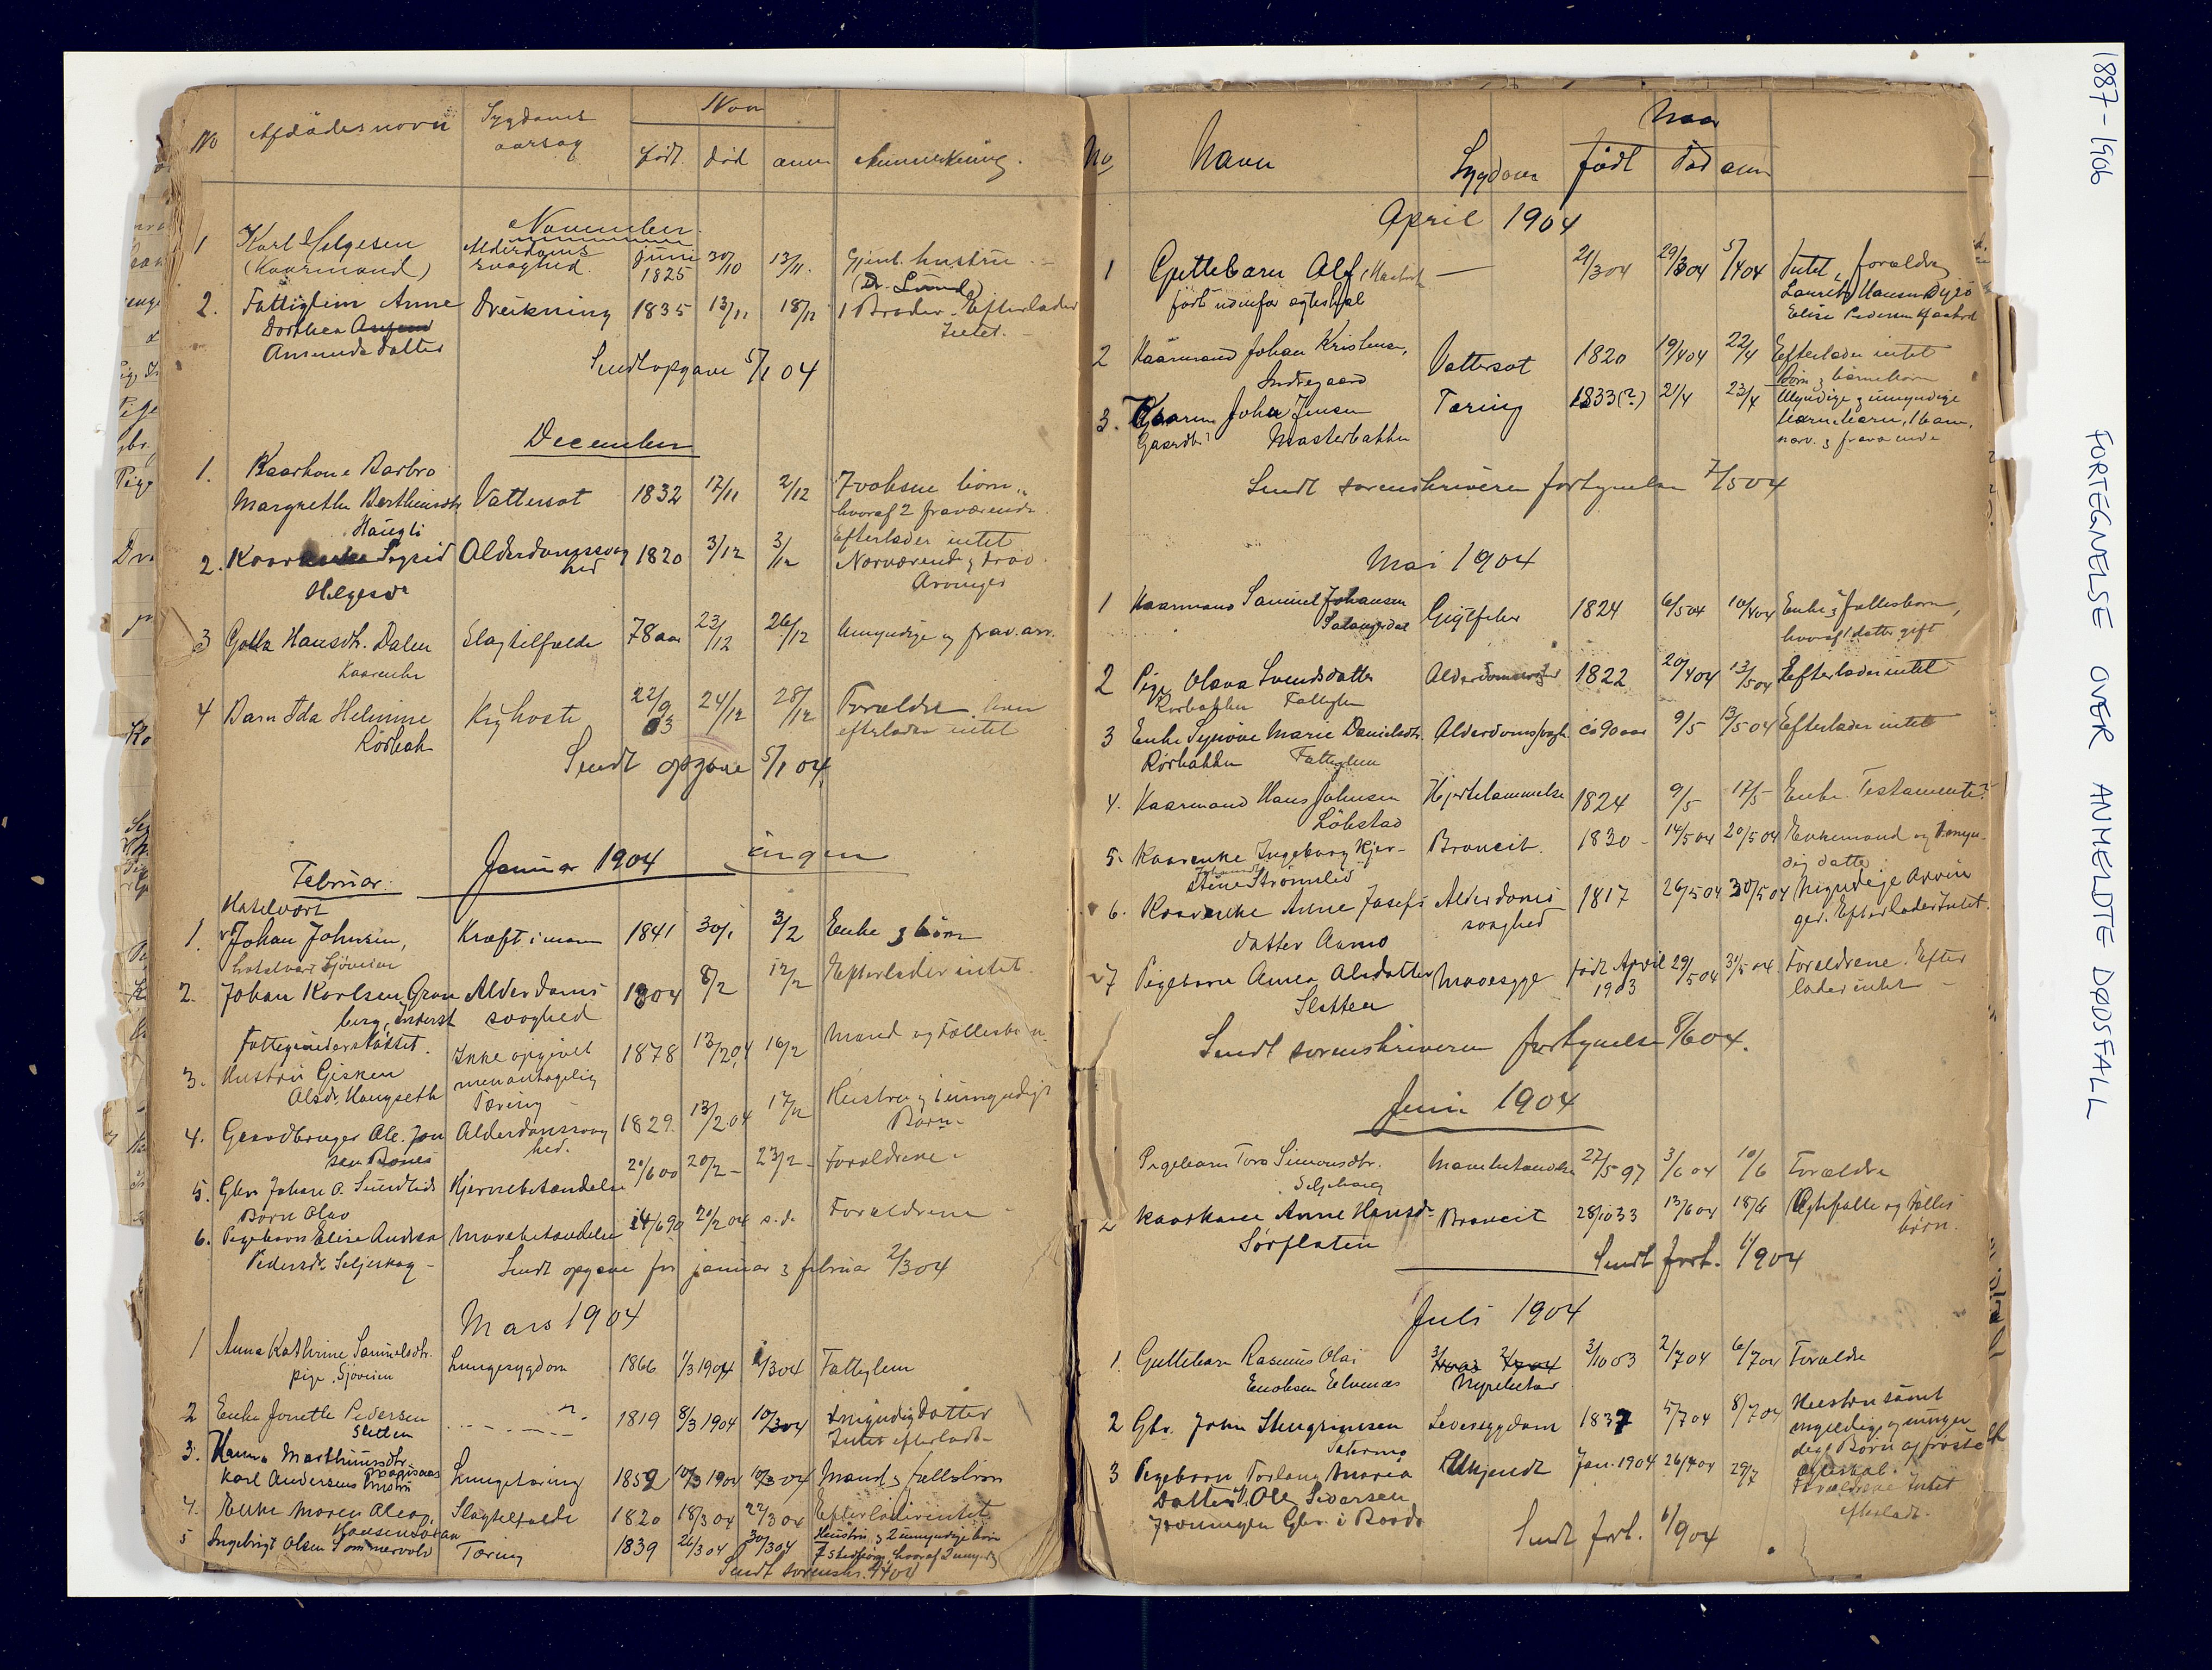 1887-1906 FORTEGNELSE OVER ANMELDTE DØDSFALL
No Afdødes navn Sygdoms aarsag Naar født død anm Anmerkning.
November.
1 Karl Helgesen Alderdoms juni 30/10 13/11. Gjenl. hustru
(Kaarmand) svaghed. 1825 (Dr. Lund)
2. Fattiglem Anne Drukning 1835 13/11 18/11 1 Broder. Efterlader
Dorthea Intet.
Amundsdatter
Sendt opgave 5/1 04
December
1. Kaarkone Barbro
Margrethe Berthinsdtr Vattersot 1832 17/11 2/12 7 voksne børn,
Haugli hvoraf 2 fraværende.
Efterlader intet
2. Sigrid Alderdomssvag 1820 3/12 3/12 Nærværende & frav.
Helgesdr hed Arvinger
3 Hansdtr. Dalen Slagtilfælde 78 aar 23/12 26/12 Umyndige og frav. arv.
Kaarenke
4 Barn Ida Helmine Kighoste 22/9 03 24/12 28/12 Forældre
Rørbak efterlader intet
Sendt opgave 5/1 04
Januar 1904 ingen
Februar.
Hotelvært
1. Johan Johnsen, Kræft i maven 1841 30/1 3/2 Enke & børn
hotelvært Sjøveien
2. Johan Karlsen Gran Alderdoms 1804 8/2 12/2 Efterlader intet.
berg, svaghed
Fattigunderstøttet.
3. Hustru Gisken Ikke opgivet 1878 13/2 04 16/2 Mand og Fællesbørn.
Olsdr. Kongseth men antagelig
Tæring
4. Gaardbruger Ole Jon Alderdomssvag 1829. 13/2 04 17/2 Hustru & 1 umyndigt
sen Bones hed. Barn
5. Gbr. Johan O. Sundlids Hjernebetændelse 20/6 00 20/2 - 23/2 - Forældrene
Barn Olav
6. Pigebarn Elise Andrea Mavebetændelse 14/6 90 20/2 04 s.d. Forældrene
Pedersdr. Seljeskog -
Sendt opgave for januar & februar 2/3 04
Mars 1904
1 Anna Kathrine Samuelsdtr. Lungesygdom 1866 1/3 1904 /3 04 Fattiglem
pige, Sjøveien
2 Enke Jonette Pedersen 1819 8/3 1904 10/3 04 Umyndig datter
Sletten Intet efterladt
3. Hanna Marthinusdtr.
Karl Andersens hustru Lungetæring 1859 10/3 1904 10/3 04 Mand & fællesbørn
4. Enke Maren Oleag. Slagtilfælde 1820 18/3 04 22/3 04 Efterlader intet
5 Ingebrigt Olsen Sommervold Tæring 1839 26/3 04 30/3 04 Hustru & 2 umyndige børn
7 stedbørn, hvoraf 2 umyndig
Sendt sorenskr. 4/4 04
No Navn Sygdom Naar født død anm
April 1904
1 Guttebarn Alf — 21/3 04 29/3 04 5/4 04 Intet, forældre
født udenfor egteskab Laurits Hansen Dyrø
Elise Pedersen
2 Kaarmand Johan Kristensen, Vattersot 1820 19/4 04 22/4 Efterlader intet
Indregaard Børn & barnebarn
3. Kaarm. John Jensen Tæring 1833(?) 21/4 23/4 Myndige & umyndige
Gaardbr. Masterbakken barnebarn,
nærv. & fraværende
Sendt sorenskriveren fortegnelse 7/5 04
Mai 1904
1 Kaarmand Samuel Johansen Gigtfeber 1824 6/5 04 10/ 04 Enke & fællesbørn,
Salangsdal hvoraf 1 datter gift
2 Pige Olava Svendsdatter 1822 20/4 04 13/5 04 Efterlader intet
Rørbakken Fattiglem
3 Enke Synøve Marie Danielsdtr. Alderdomssvagh. ca 90 aar 9/5 13/5 04 Efterlader intet
Rørbakken Fattiglem
4. Kaarmand Hans Johnsen Hjertelammelse 1824 9/5 17/5 Enke. Testamente?
Løkstad
5. Kaarenke Ingeborg Kjer- Broncit. 1830 - 14/5 04 20/5 04 Enkemand og 1 umyn-
stine Strømslid dig datter
6. Kaarenke Anne Josefs Alderdoms 1817 26/5 04 30/5 04 Myndige Arvin
datter Aamo svaghed ger. Efterlader Intet.
7 Pigebarn Annea Olsdatter Mavesyge født April 1903 29/5 04 31/5 04 Forældrene. Efter
Sletten lader intet -
Sendt sorenskriveren fortegnelse 8/6 04.
Juni 1904
Pigebarn Tora Simonsdtr. Mavebetændelse 22/5 97 3/6 04 10/6 Forældre
Seljehaug
2 Kaarkone Anne Hansdr Broncit 28/10 33 13/6 04 18/6 Egtefælle og fælles
Sørflaten børn.
Sendt fort. 1/9 04
Juli 1904
1. Guttebarn Rasmus Olai 3/10 03 2/7 04 6/7 04 Forældre
Enoksen Elvenes
2 Gbr. John Stengrimsen Leversygdom 1837 5/7 04 8/7 04 Hustru samt
Sætermo myndige og umyn
dige Børn af første
egteskab.
3 Pigebarn Torlaug Maria Ukjendt Jan. 1904 26/ 04 29/7 Forældrene Intet
Datter af Ole Siversen efterladt.
Gbr. i Bardo
Sendt fort. 1/9 04